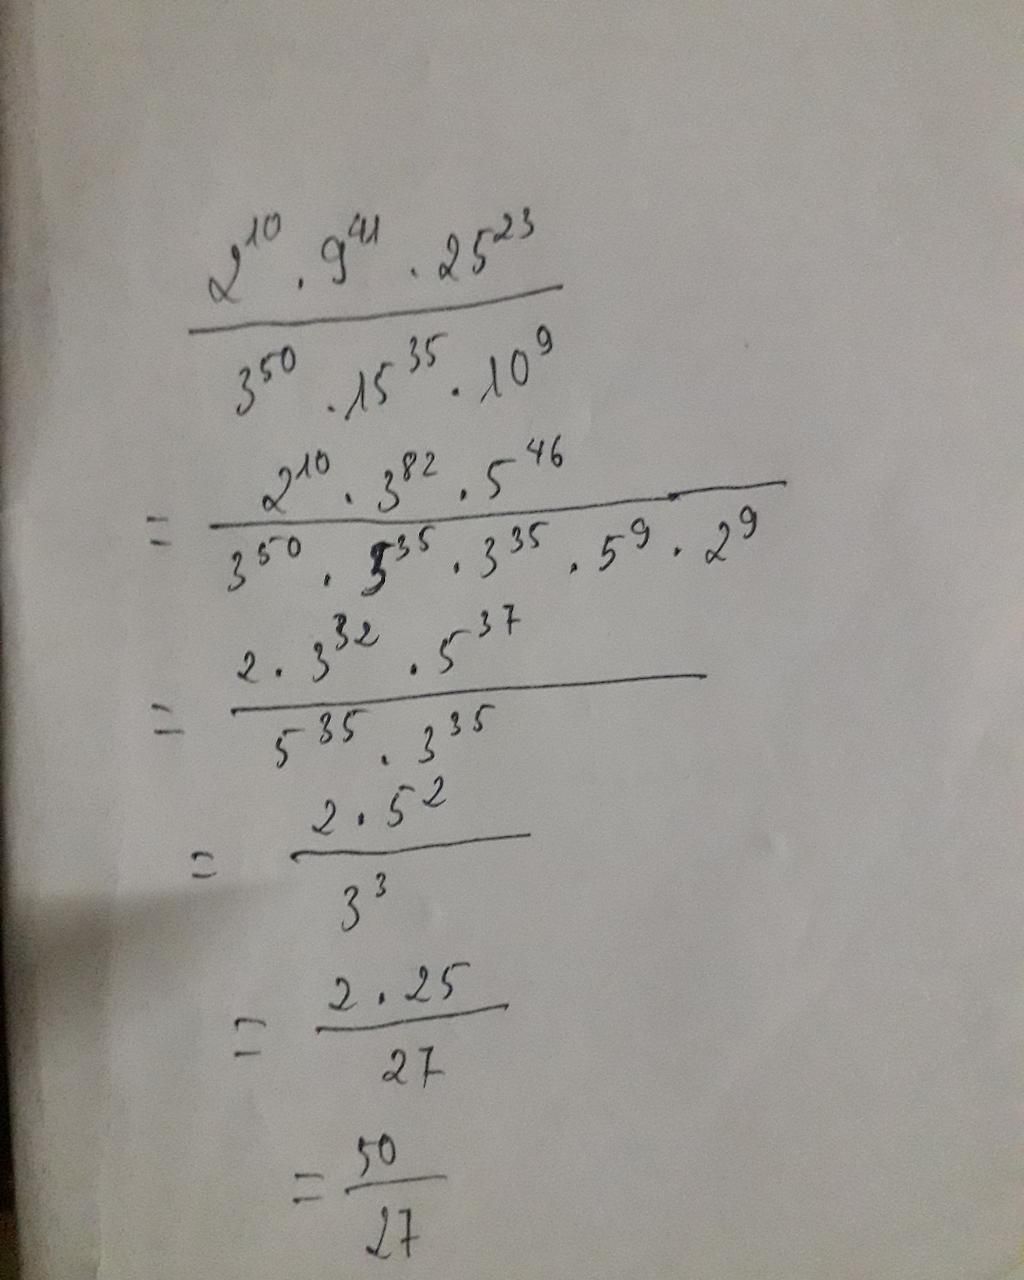 2^10 . 9^41 . 25^23
3^50 . 15^35 . 10^9
= 2^10 . 3^82 . 5^46
3^50 . 5^35 . 3^35 . 5^9 . 2^9
= 2 . 3^32 . 5^37
5^35 . 3^35
= 2 . 5^2
3^3
= 2 . 25
27
= 50
27